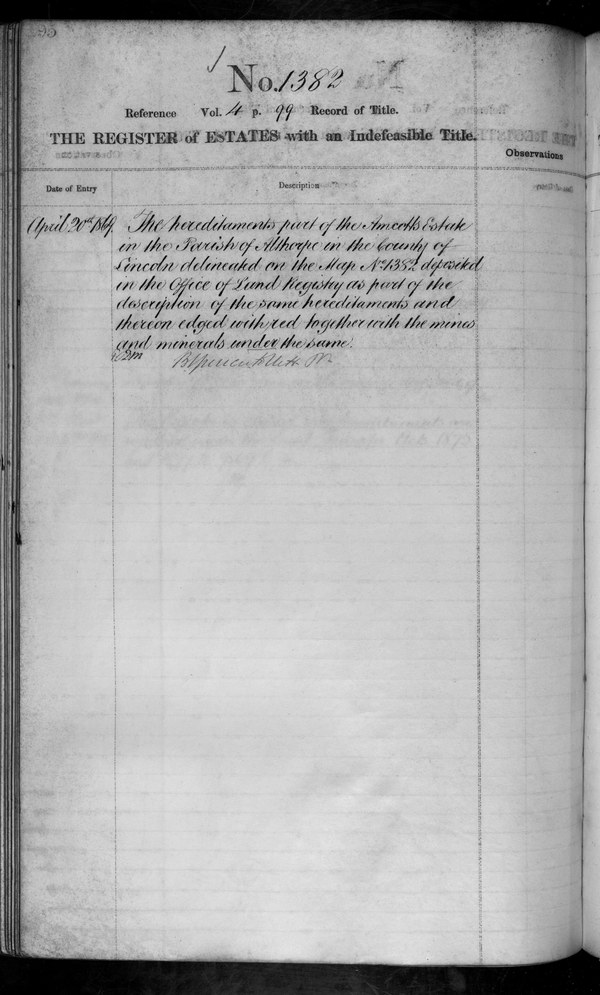 No. 1382
Reference Vol. 4 p. 99 Record of Title.
THE REGISTER of ESTATES with an Indefeasible Title.
Observations
Date of Entry
Description
April 20th 1869.
The hereditaments part of the Amcotts Estate
in the Parish of Althorpe in the County of
Lincoln delineated on the Map No 1382 deposited
in the Office of Land Registry as part of the
description of the same hereditaments and
thereon edged with red together with the mines
and minerals under the same.